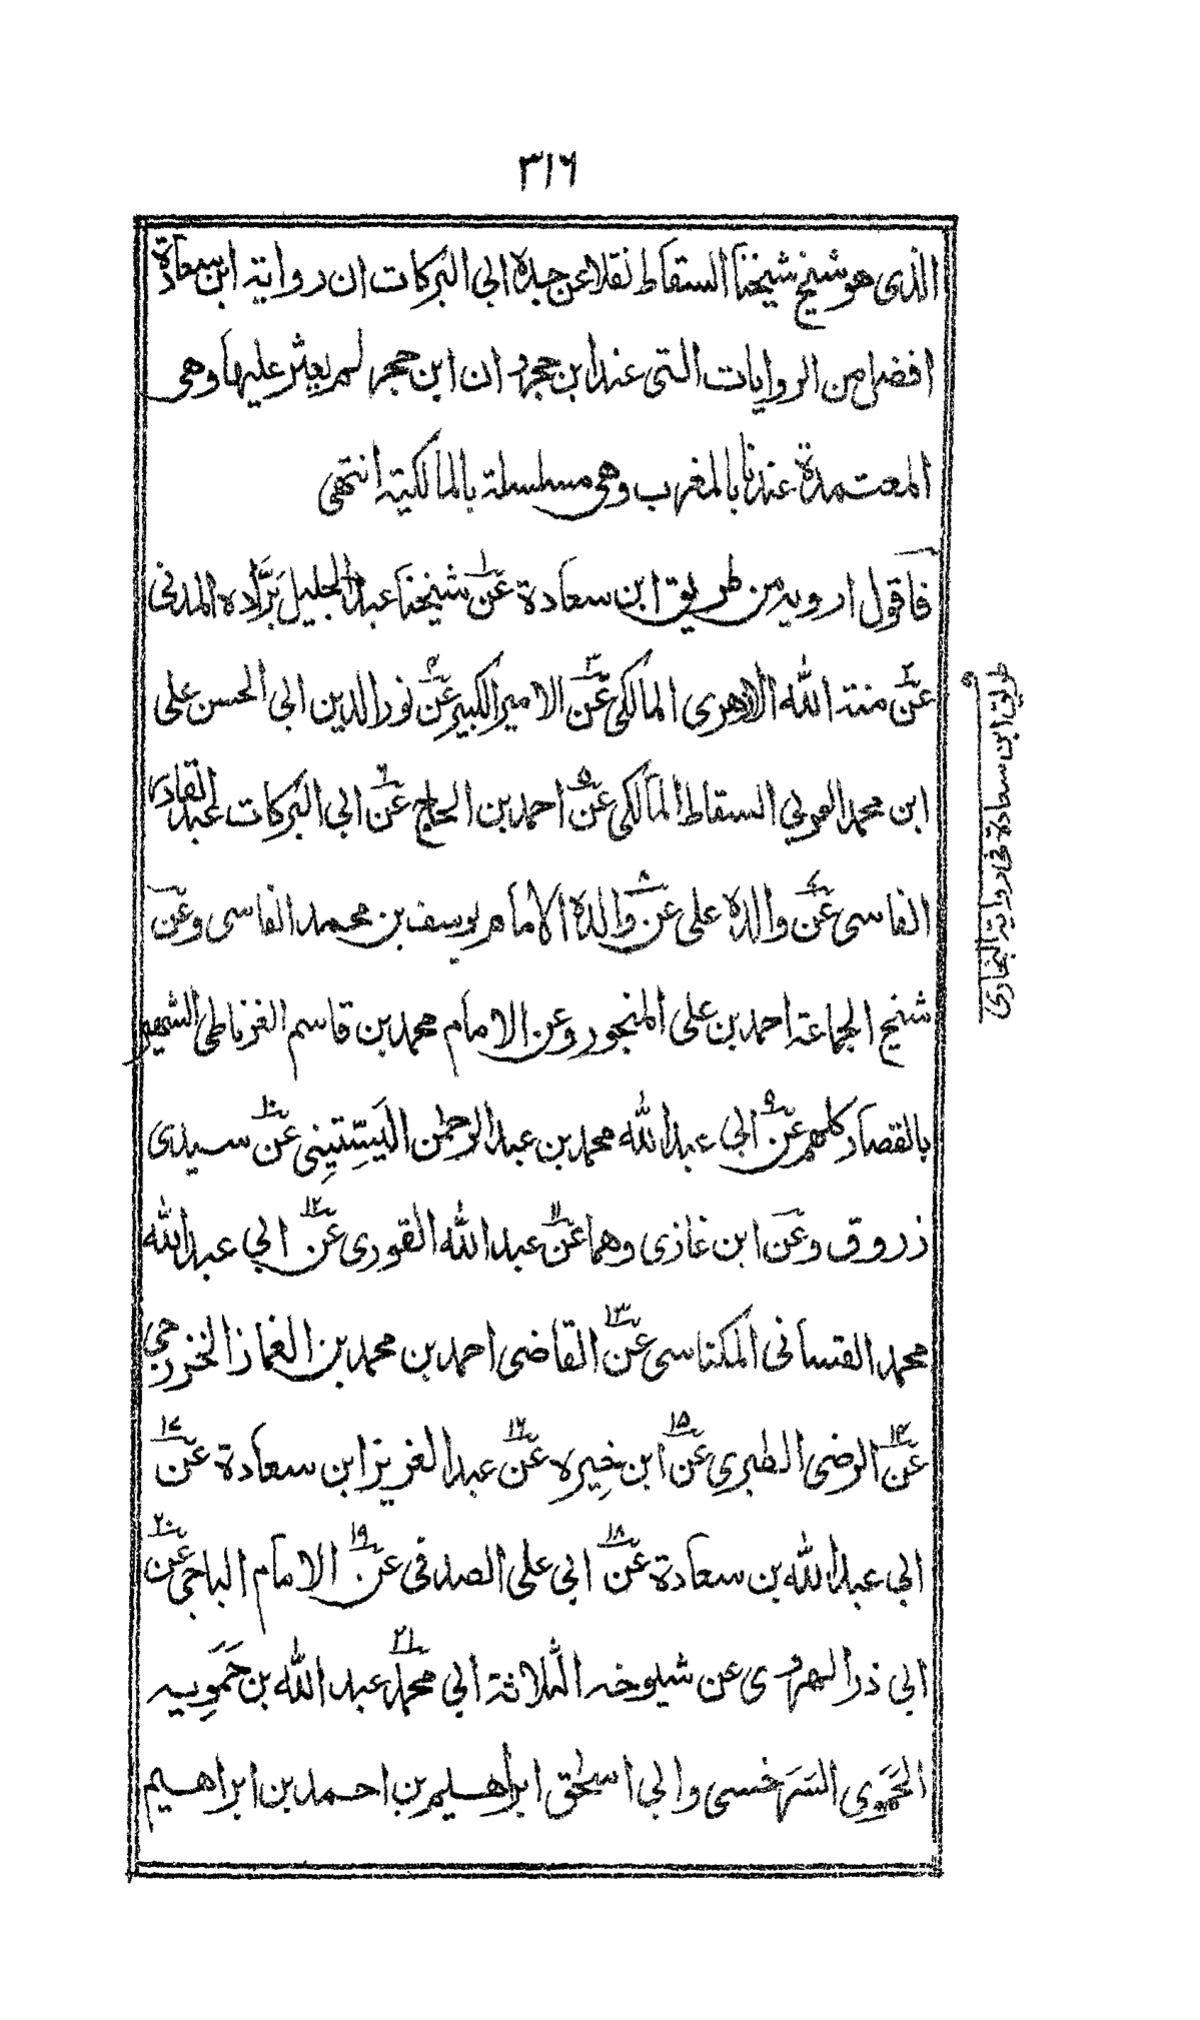 ٣١٦
الذى هو شيخ شيخنا السقاط نقلا عن جده ابي البركات ان رواية ابن سعادة
افضل من الروايات التى عند ابن حجر و ان ابن حجر لم يعثر عليها وهى
المعتمدة عندنا بالمغرب وهى مسلسلة بالمالكية انتهى
فاقول ارويه من طريق ابن سعادة عن ١ شيخنا عبد الجليل برَّاده المدنى
عن ٢ منة الله الازهرى المالكى عن ٣ الامير الكبير عن ٤ نور الدين ابي الحسن على
ابن محمد العربي السقاط المالكى عن ٥ احمد بن الحاج عن ٦ ابي البركات عبد القادر
الفاسى عن ٧ والده على عن ٨ والده الامام يوسف بن محمد الفاسى وعن
شيخ الجماعة احمد بن على المنجور وعن الامام محمد بن قاسم الغرناطى الشهير
بالقصار كلهم عن ٩ ابي عبد الله محمد بن عبد الرحمن اليَسِّتِينِى عن ١٠ سيدى
زروق وعن ابن غازى وهما عن ١١ عبد الله القورى عن ١٢ ابي عبد الله
محمد الغسانى المكناسى عن ١٣ القاضى احمد بن محمد بن الغماز الخزرجي
عن ١٤ الرضى الطبرى عن ١٥ ابن خِيره عن ١٦ عبد العزيز ابن سعادة عن ١٧
ابي عبد الله بن سعادة عن ١٨ ابي على الصدفى عن ١٩ الامام الباجى عن ٢٠
ابي ذر الهروى عن شيوخه الثلاثة ابي محمد ٢١ عبد الله بن حَمَّوِييه
الحَمَّوِى السَرَخسى وابي اسحٰق ابراهيم بن احمد بن ابراهيم
طريق ابن سعادة فى رواية البخارى